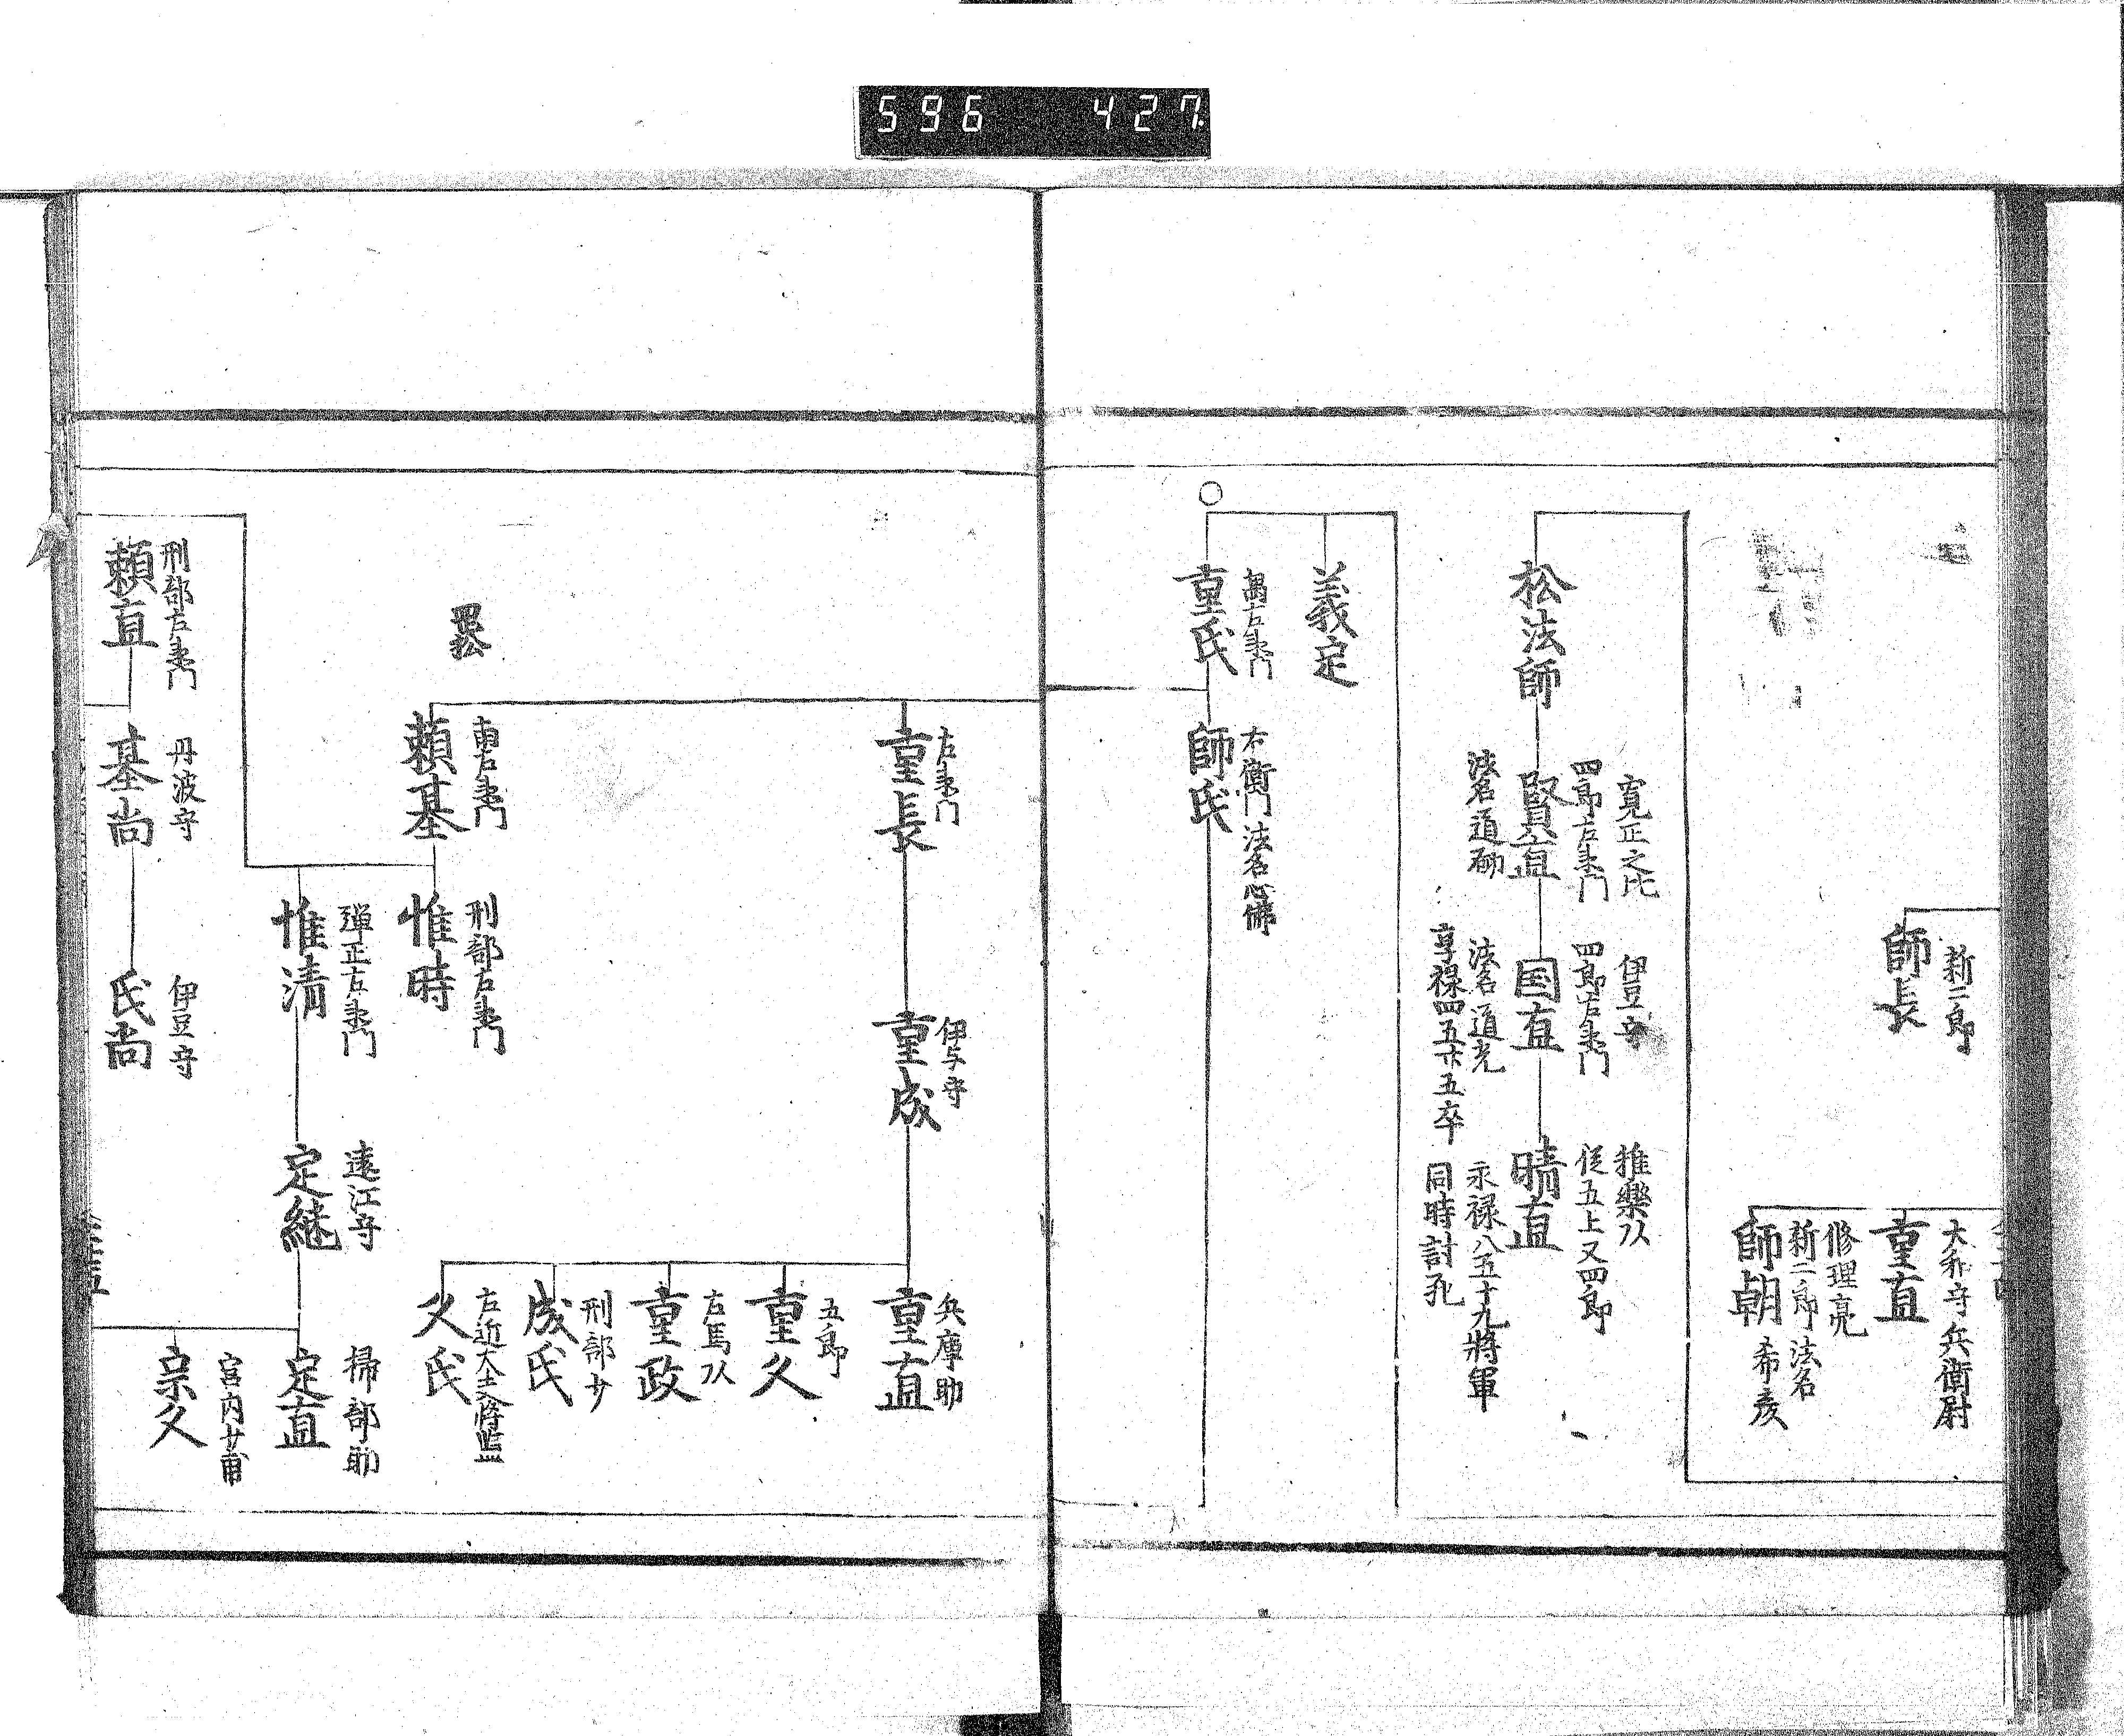 596 427
新二郎
師長
大和守 兵衛尉
重直
修理亮
新二郎 法名
希彦
師朝
松法師
寛正之比
四郎左衛門
賢直
法名道砌
伊豆守
四郎右衛門
国直
法名道光
享禄四五廿五卒
雅楽以
従五上又四郎
晴直
永禄八五十九將軍
同時討死
義定
萬右衛門
重氏
右衛門 法名心佛
師氏
左衛門
重長
伊与守
重成
兵庫助
重直
五郎
重久
右馬以
重政
刑部少
成氏
右近大夫將監
久氏
南右衛門
頼基
刑部左衛門
惟時
弾正左衛門
惟清
遠江守
定継
掃部助
定直
宮内少甫
宗久
刑部左衛門
頼直
丹波守
基尚
伊豆守
氏尚